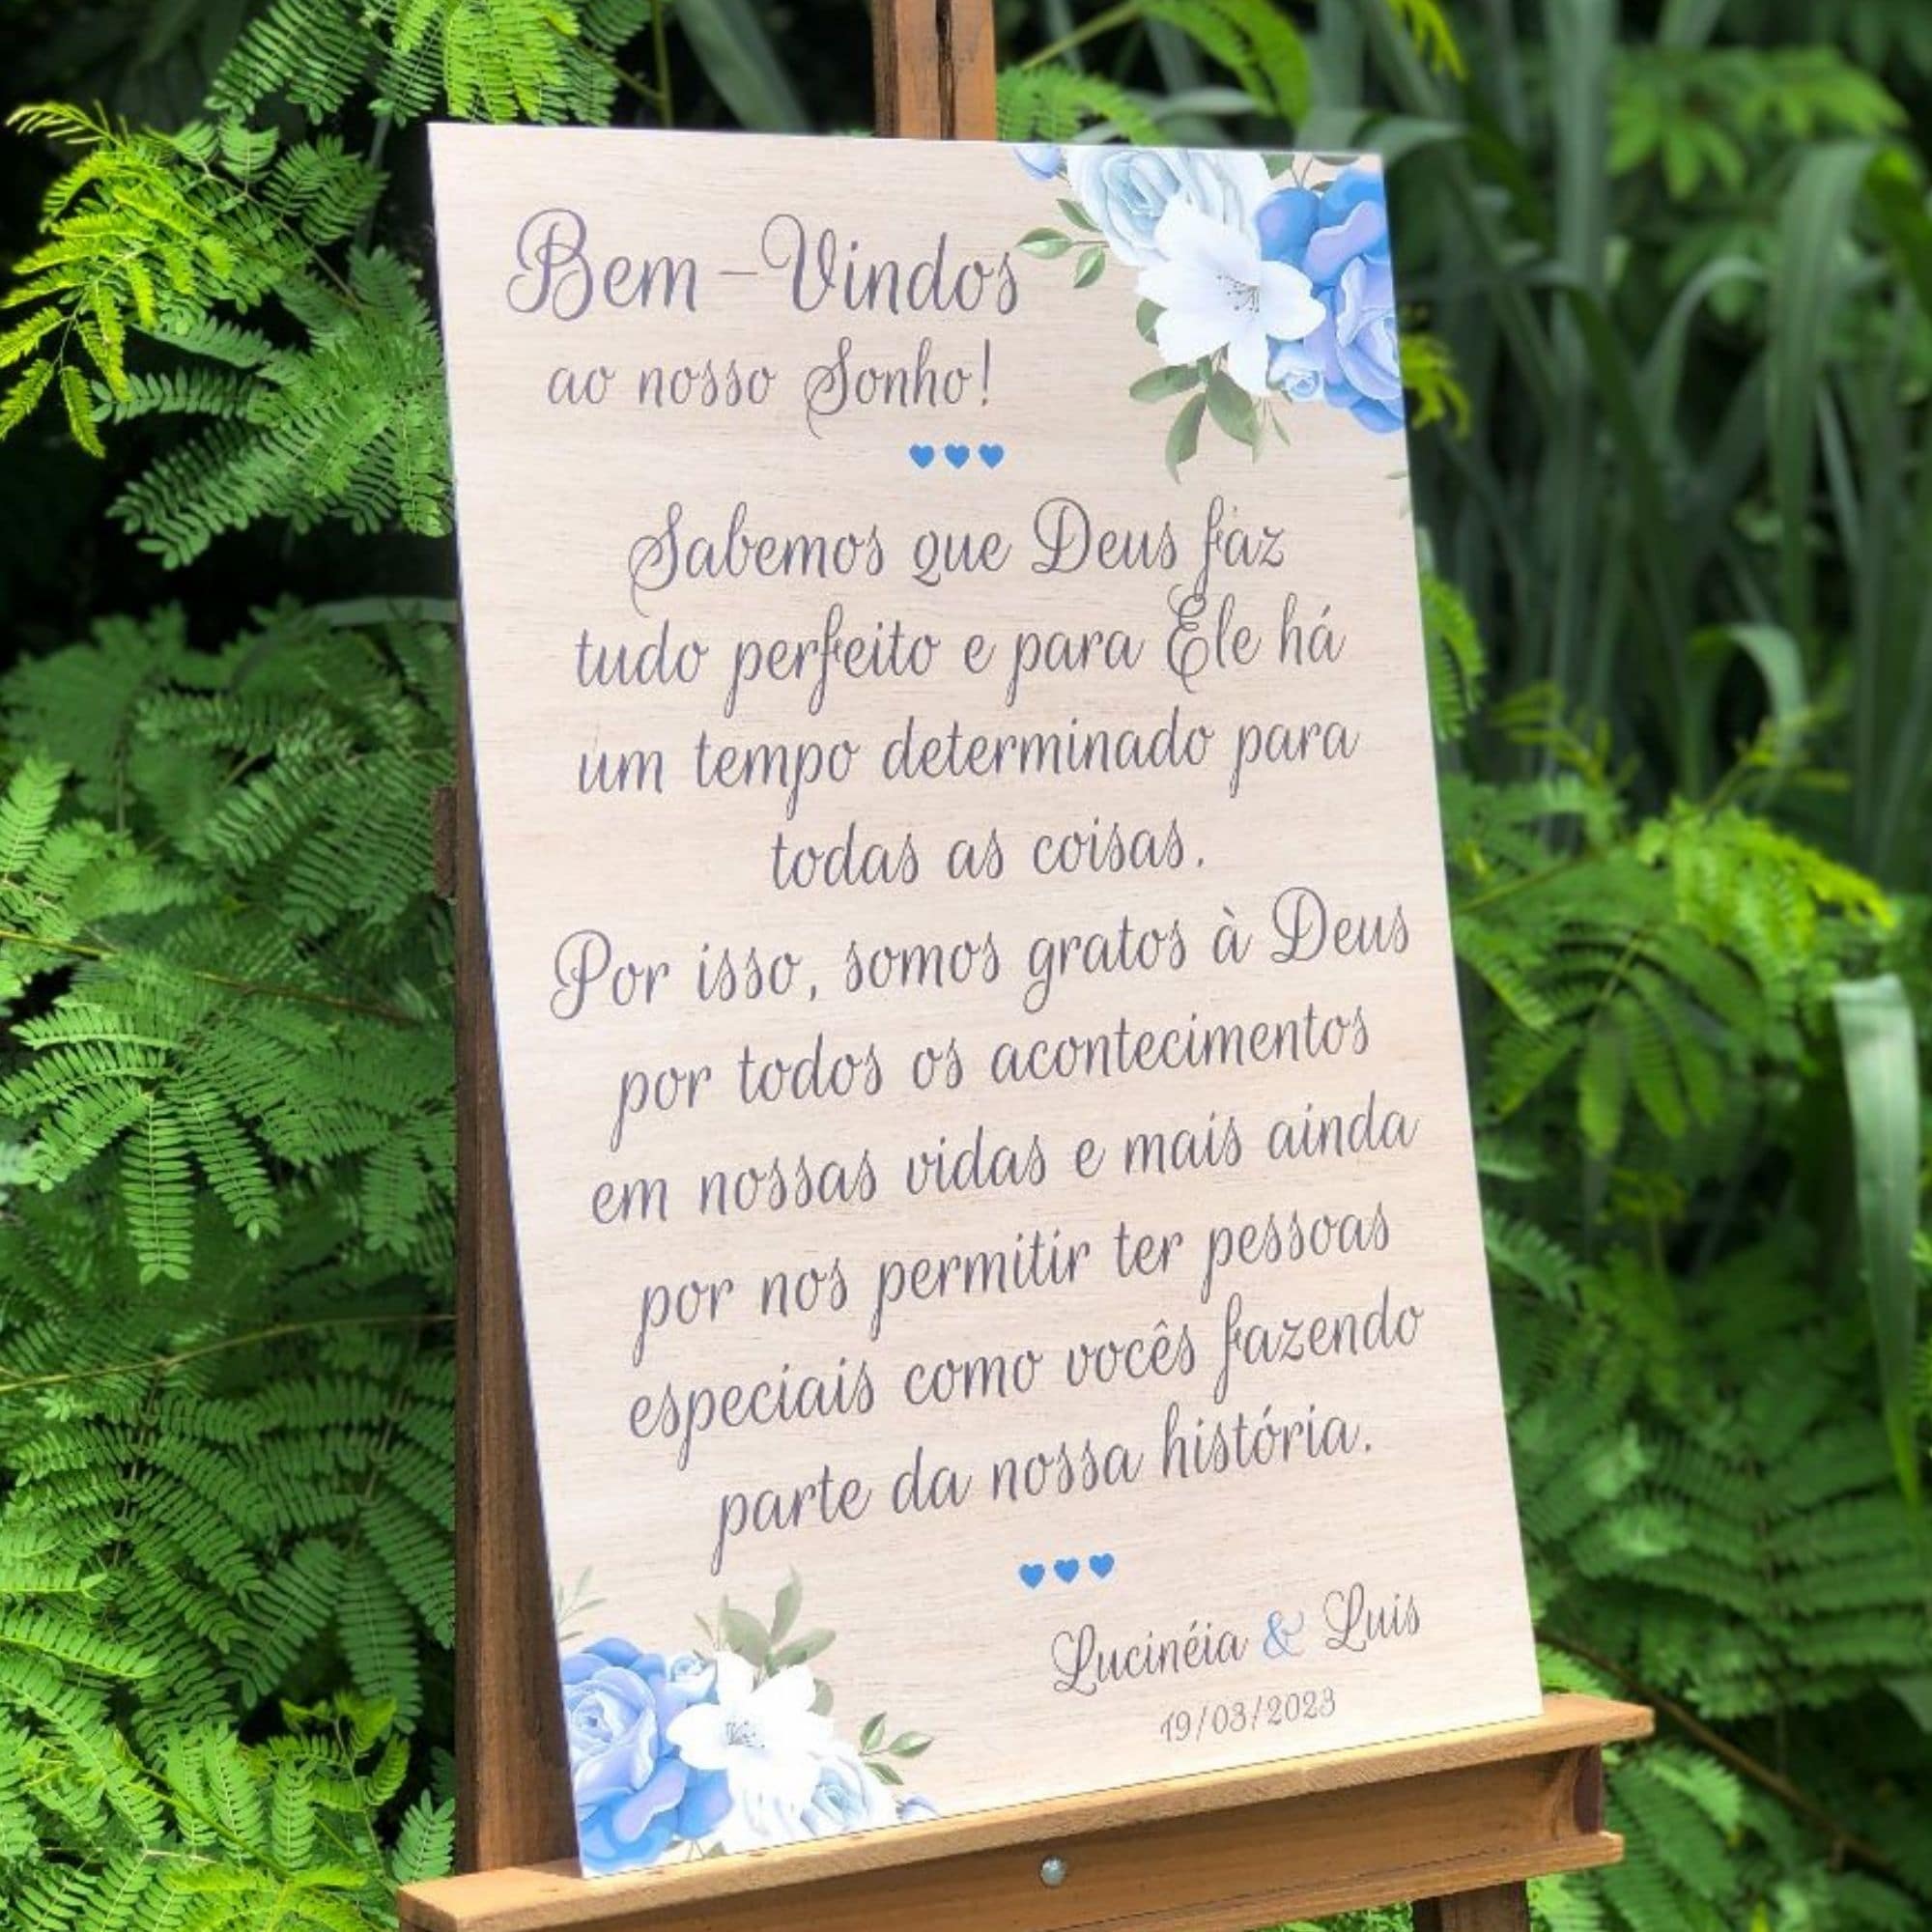 Bem-Vindos
ao nosso Sonho!
Sabemos que Deus faz
tudo perfeito e para Ele há
um tempo determinado para
todas as coisas.
Por isso, somos gratos à Deus
por todos os acontecimentos
em nossas vidas e mais ainda
por nos permitir ter pessoas
especiais como vocês fazendo
parte da nossa história.
Lucinéia & Luis
19/03/2023